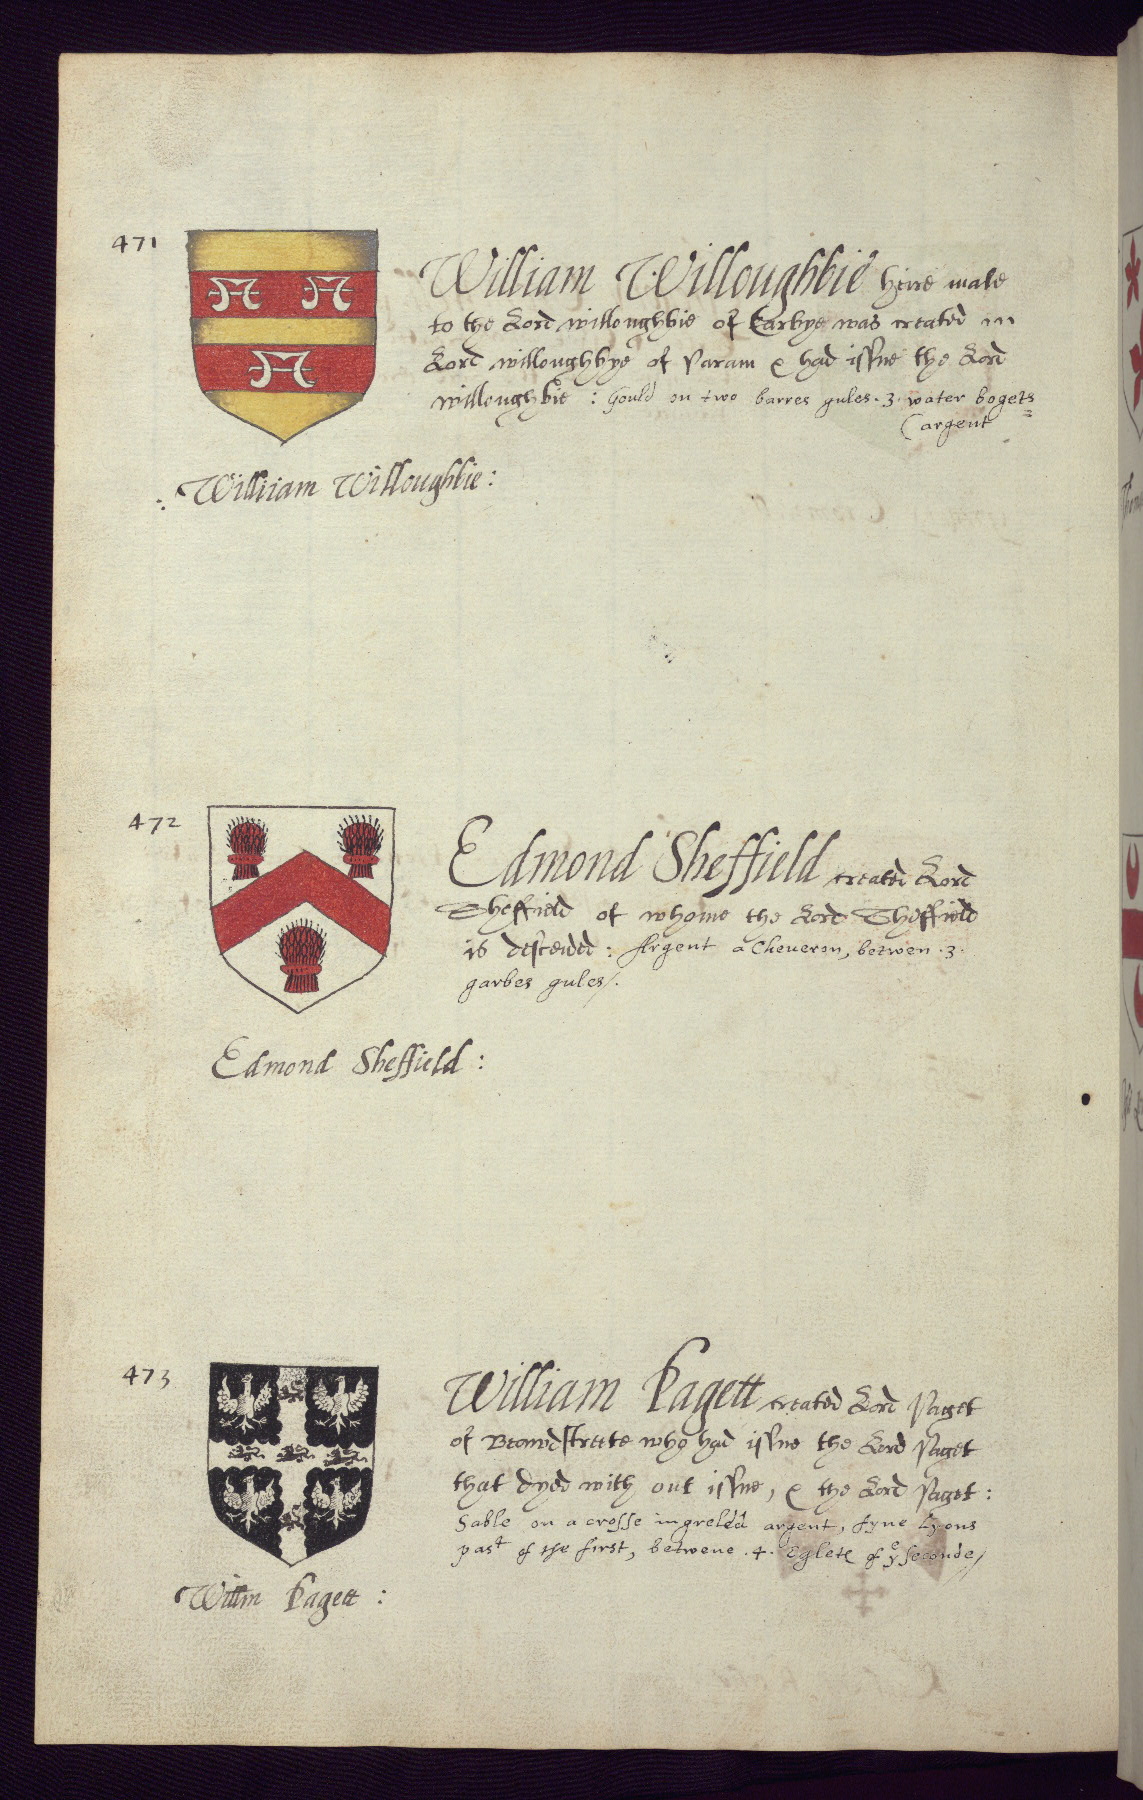 471
William Willoughbie heire male
to the Lord willoughbie of Earbye was created in
Lord willoughbye of Param & had issue the Lord
willoughbie : Gould on two barres gules . 3 . water bogets
(argent
William Willoughbie :
472
Edmond Sheffield created Lord
Sheffield of whome the Lord Sheffield
is descended : Argent a Cheveron, betwen . 3 .
garbes gules /.
Edmond Sheffield :
473
William Pagett created Lord Paget
of Beawdstreete who had issue the Lord Paget
that dyed with out issue, & the Lord Paget :
Sable on a crosse ingreled argent, fyve Lyons
past of the first, betwene . 4 . Egletę of yᵉ seconde /
Willm Pagett :